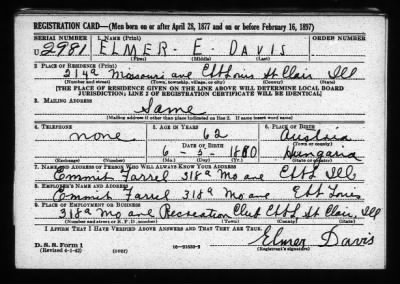 REGISTRATION CARD—(Men born on or after April 28, 1877 and on or before February 16, 1897)
SERIAL NUMBER 1. NAME (Print) ORDER NUMBER
U 2981 ELMER E. DAVIS
(First) (Middle) (Last)
2. PLACE OF RESIDENCE (Print)
214a Missouri ave E St Louis St Clair Ill
(Number and street) (Town, township, village, or city) (County) (State)
[THE PLACE OF RESIDENCE GIVEN ON THE LINE ABOVE WILL DETERMINE LOCAL BOARD
JURISDICTION; LINE 2 OF REGISTRATION CERTIFICATE WILL BE IDENTICAL]
3. MAILING ADDRESS
Same
[Mailing address if other than place indicated on line 2. If same insert word same]
4. TELEPHONE 5. AGE IN YEARS 6. PLACE OF BIRTH
none 62 Austria
DATE OF BIRTH (Town or county)
6 - 5 - 1880 Hungaria
(Exchange) (Number) (Mo.) (Day) (Yr.) (State or country)
7. NAME AND ADDRESS OF PERSON WHO WILL ALWAYS KNOW YOUR ADDRESS
Emmit Farrel 318a Mo ave E St L Ill
8. EMPLOYER'S NAME AND ADDRESS
Emmit Farrel 318a Mo ave E St Louis
9. PLACE OF EMPLOYMENT OR BUSINESS
318a Mo ave Recreation Club E St L St Clair, Ill
(Number and street or R. F. D. number) (Town) (County) (State)
I AFFIRM THAT I HAVE VERIFIED ABOVE ANSWERS AND THAT THEY ARE TRUE.
Elmer Davis
D. S. S. Form 1
(Revised 4-1-42) (over) (Registrant's signature)